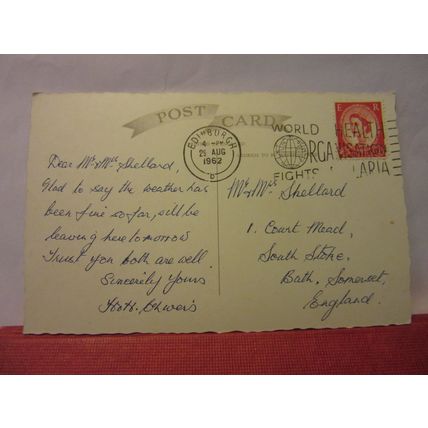 POST CARD
EDINBURGH
29 AUG
1962
WORLD HEALTH
ORGANISATION
FIGHTS MALARIA
E R
Dear Mr & Mrs Shellard,
Glad to say the weather has
been fine so far, will be
leaving here tomorrow
Trust you both are well.
Sincerely Yours
Mr & Mrs Shellard
1. Court Mead,
South Stoke,
Bath, Somerset,
England.